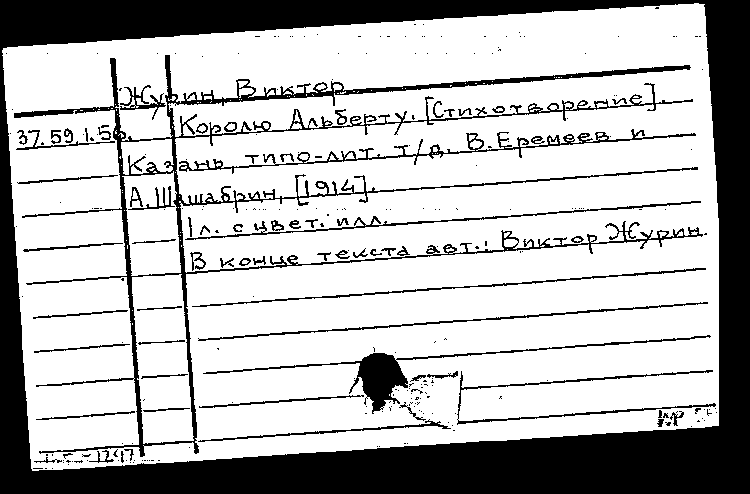 Журин, Виктор
37.59.1.56. Королю Альберту. [Стихотворение].
Казань, типо-лит. т/д. В. Еремеев и
А. Шашабрин, [1914].
1л. с цвет. илл.
В конце текста авт.: Виктор Журин.